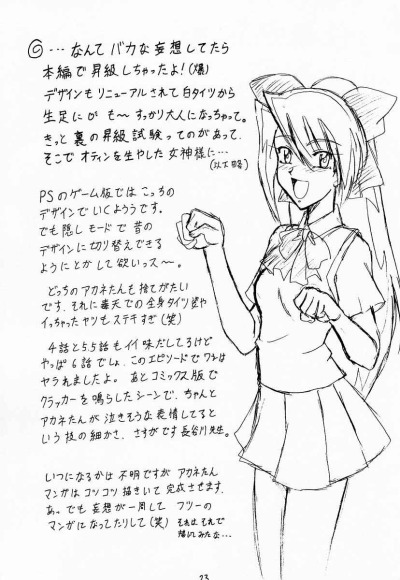 ◎…なんて バカな妄想してたら
本編で昇級しちゃったよ!(爆)
デザインもリニューアルされて白タイツから
生足に!! も〜 すっかり大人になっちゃって。
きっと裏の昇級試験ってのがあって、
そこで オティンを生やした女神様に…
(以下略)
PSのゲーム版では こっちの
デザインでいくようです。
でも隠しモードで昔の
デザインに切り替えできる
ようにとかして欲しいっス〜。
どっちのアカネたんも捨てがたい
です。それに毒天での全身タイツ姿や
イっちゃったヤツもステキすぎ(笑)
4話と5.5話もイイ味だしてるけど
やっぱ6話でしょ、このエピソードでワタシは
ヤラれましたよ。あとコミックス版で
クラッカーを鳴らしたシーンで、ちゃんと
アカネたんが泣きそうな表情してると
いう技の細かさ、さすがです長谷川先生。
いつになるかは不明ですが アカネたん
マンガはコツコツ描きいて完成させます。
あ。でも妄想が一周して フツーの
マンガになってたりして(笑) それはそれで
描いてみたな…
23